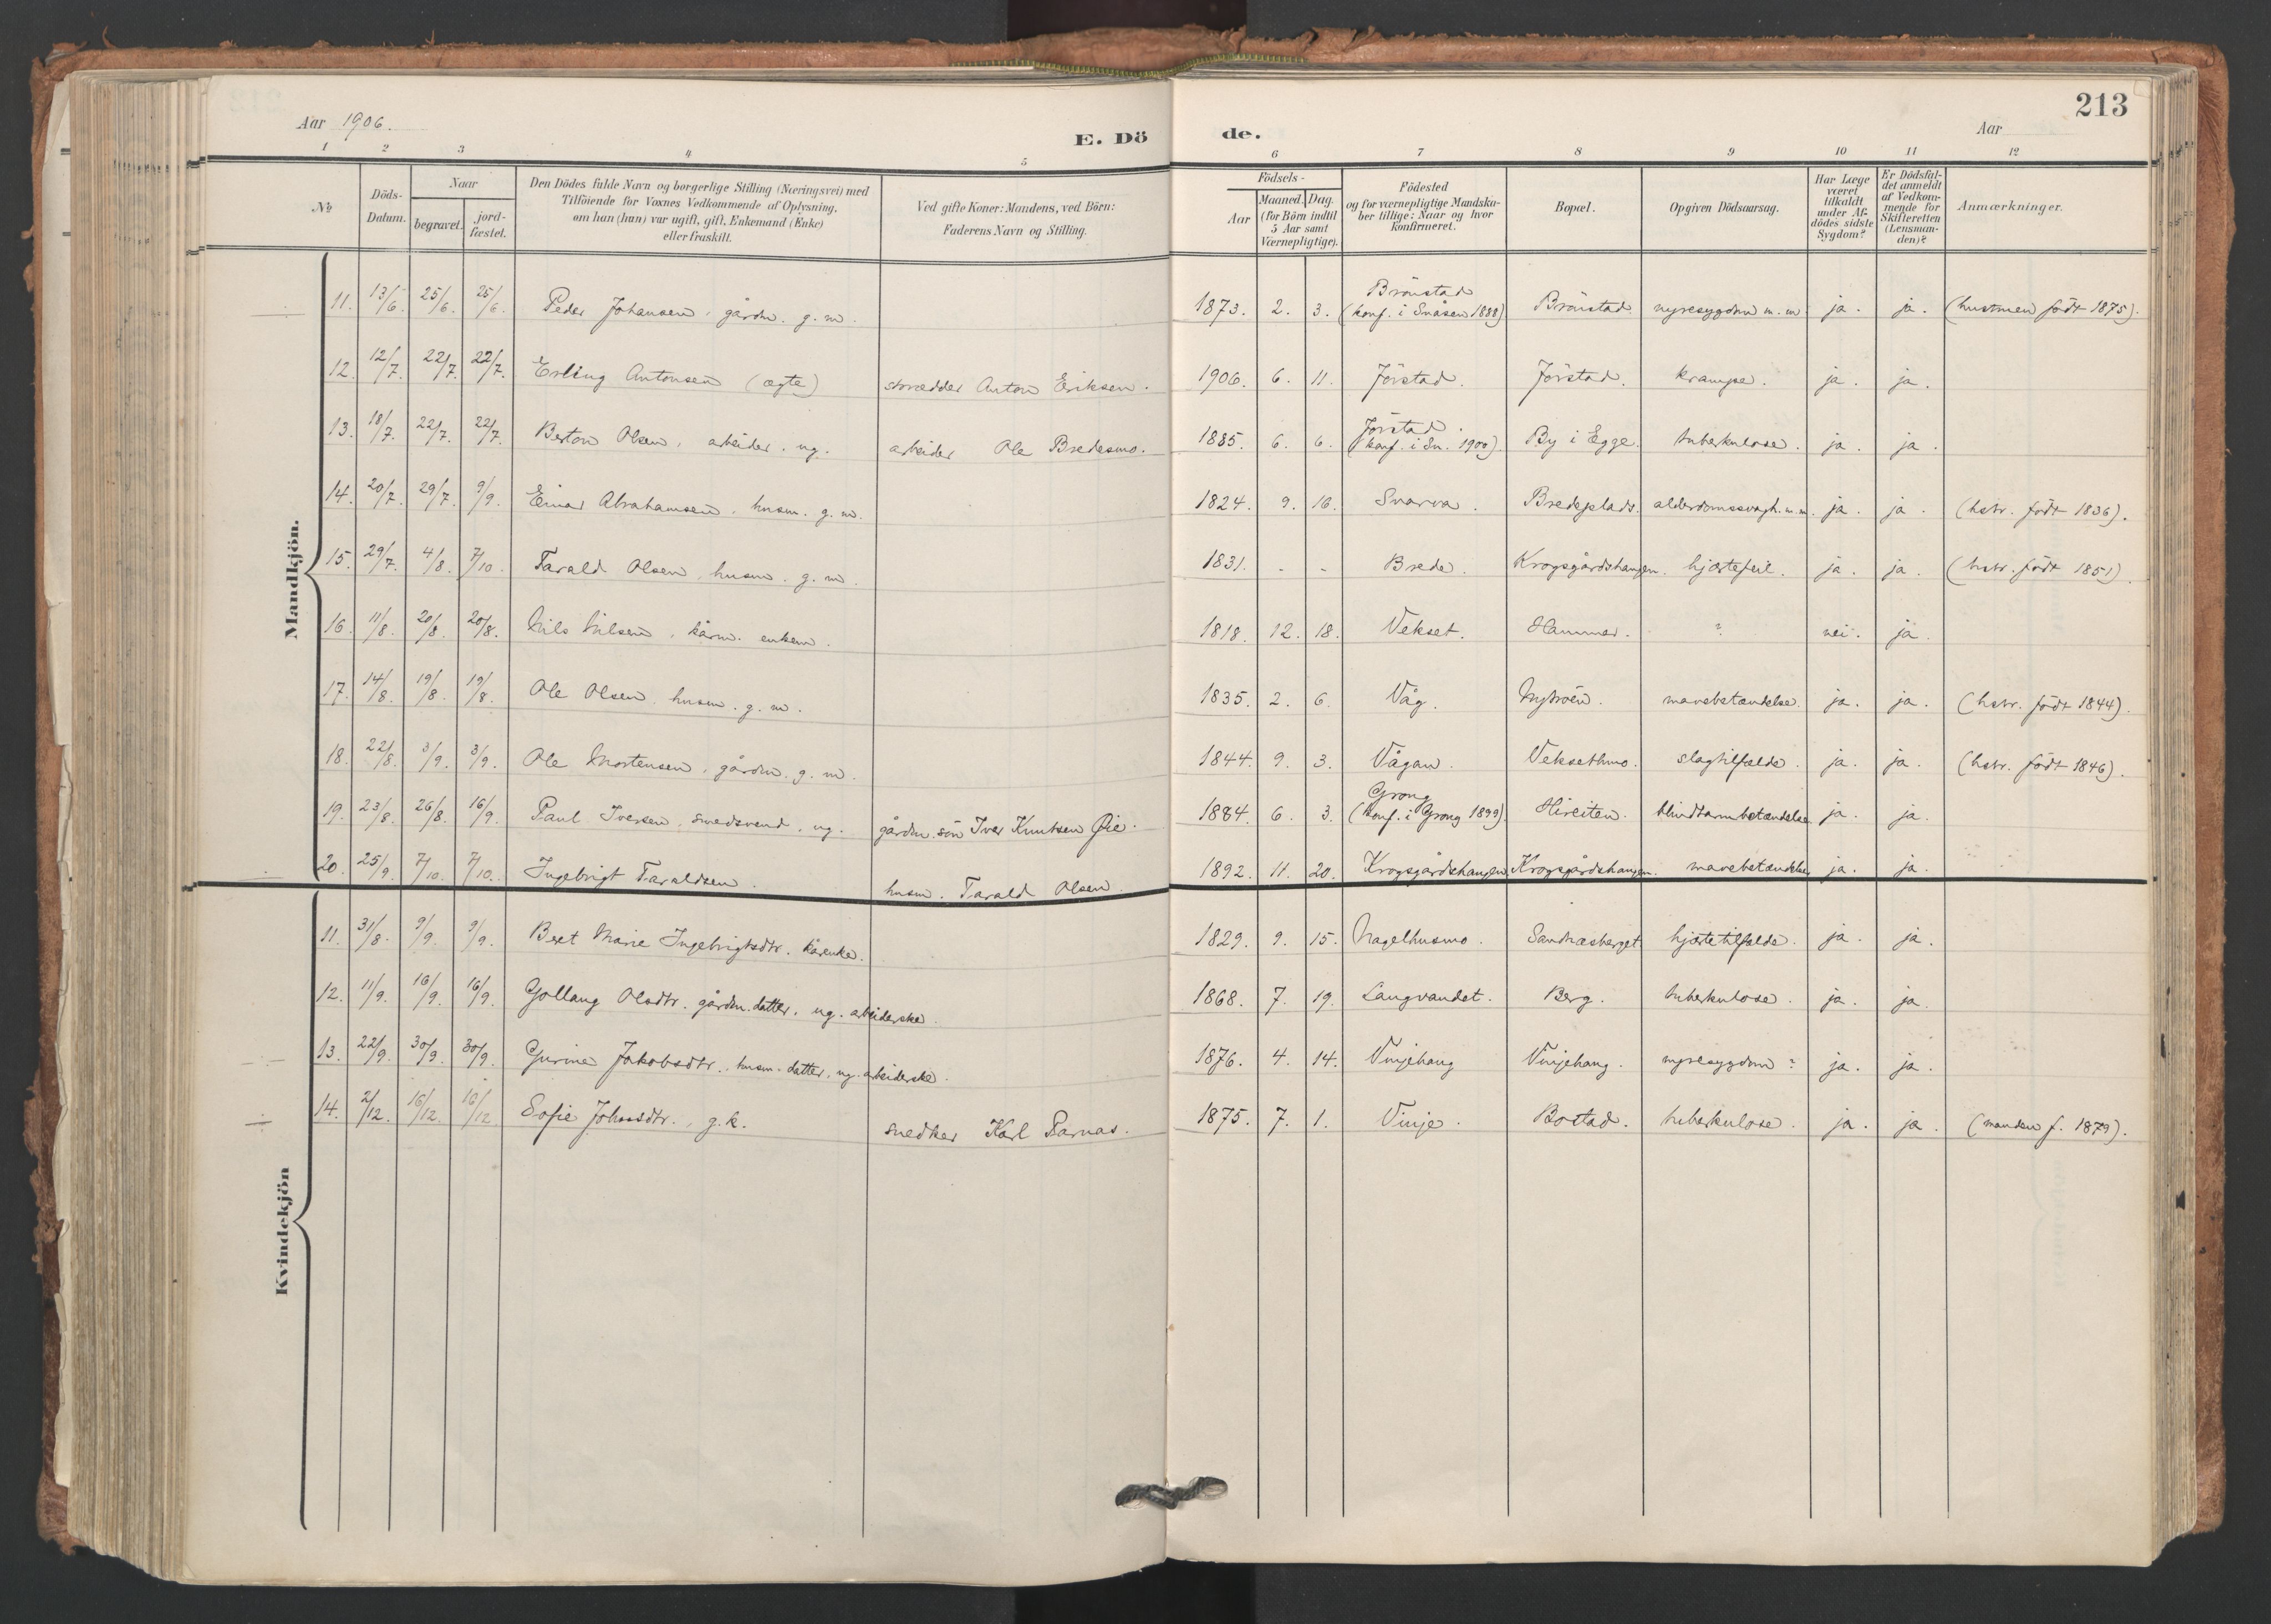 Aar 1906.
E. Dö de.
Aar
213
1 2 3 4 5 6 7 8 9 10 11 12
№
Döds-Datum.
Naar
begravet.
jord-fæstet.
Den Dödes fulde Navn og borgerlige Stilling (Næringsvei) med
Tilföiende for Voxnes Vedkommende af Oplysning,
om han (hun) var ugift, gift, Enkemand (Enke)
eller fraskilt.
Ved gifte Koner: Mandens, ved Börn:
Faderens Navn og Stilling.
Födsels-
Aar
Maaned. Dag.
(for Börn indtil
5 Aar samt
Værnepligtige).
Födested
og for værnepligtige Mandska-
ber tillige: Naar og hvor
konfirmeret.
Bopæl.
Opgiven Dödsaarsag.
Har Læge
været
tilkaldt
under Af-
dödes sidste
Sygdom?
Er Dödsfal-
det anmeldt
af Vedkom-
mende for
Skifteretten
(Lensman-
den)?
Anmærkninger.
Mandkjön.
11. 13/6. 25/6. 25/6. Peder Johansen, gårdm. g. m. 1873. 2. 3. Brönstad (konf. i Snåsen 1888) Brönstad. nyresygdom m. m. ja. ja. (hustruen födt 1875).
12. 12/7. 22/7. 22/7. Erling Antonsen (ægte) skrædder Anton Eriksen. 1906. 6. 11. Jörstad. Jörstad. krampe. ja. ja.
13. 18/7. 22/7. 22/7. Berton Olsen, arbeider, ug. arbeider Ole Bredesmo. 1885. 6. 6. Jörstad. (konf. i Sn. 1900). By i Egge. tuberkulose. ja. ja.
14. 20/7. 29/7. 9/9. Einar Abrahamsen, husm. g. m. 1824. 9. 16. Snarva. Bredeplads. alderdomssvagh. m.m. ja. ja. (hstr. födt 1836).
15. 29/7. 4/8. 7/10. Tarald Olsen, husm. g. m. 1831. - - Brede. Krogsgårdshaugen. hjertefeil. ja. ja. (hstr. födt 1851).
16. 11/8. 20/8. 20/8. Nils Nilsen, kårm. enkem. 1818. 12. 18. Vekset. Hammer. ? nei. ja
17. 14/8. 19/8. 19/8. Ole Olsen, husm. g. m. 1835. 2. 6. Våg. Nytröen. mavebetændelse. ja. ja. (hstr. födt 1844).
18. 22/8. 3/9. 3/9. Ole Mortensen, gårdm. g. m. 1844. 9. 3. Vågan. Veksethmo. slagtilfælde. ja. ja. (hstr. födt 1846).
19. 23/8. 26/8. 16/9. Paul Iversen, smedsvend, ug. gårdm. sön Iver Knutsen Øie. 1884. 6. 3. Grong (konf. i Grong 1899). blindtarmbetændelse ja. ja.
20. 25/9. 7/10. 7/10. Ingebrigt Taraldsen. husm. Tarald Olsen. 1892. 11. 20. Krogsgårdshaugen Krogsgårdshaugen. mavebetændelse ja. ja.
Kvindekjön
11. 31/8. 9/9. 9/9. Beret Marie Ingebrigtsdtr. kårenke. 1829. 9. 15. Nagelhusmo. Sandnæsberget hjertetilfælde. ja. ja.
12. 11/9. 16/9. 16/9. Gollaug Olsdtr. gårdm. datter, ug. arbeiderske. 1868. 7. 19. Langvandet. Berg. tuberkulose. ja. ja.
13. 22/9. 30/9. 30/9. Gurine Jakobsdtr., husm. datter, ug. arbeiderske. 1876. 4. 14. Vinjehaug Vinjehaug. nyresygdom? ja. ja.
14. 2/12. 16/12. 16/12 Sofie Johnsdtr., g. k. snedker Karl Parnas. 1875. 7. 1. Vinje. Bostad. tuberkulose. ja. ja. (manden f. 1879).